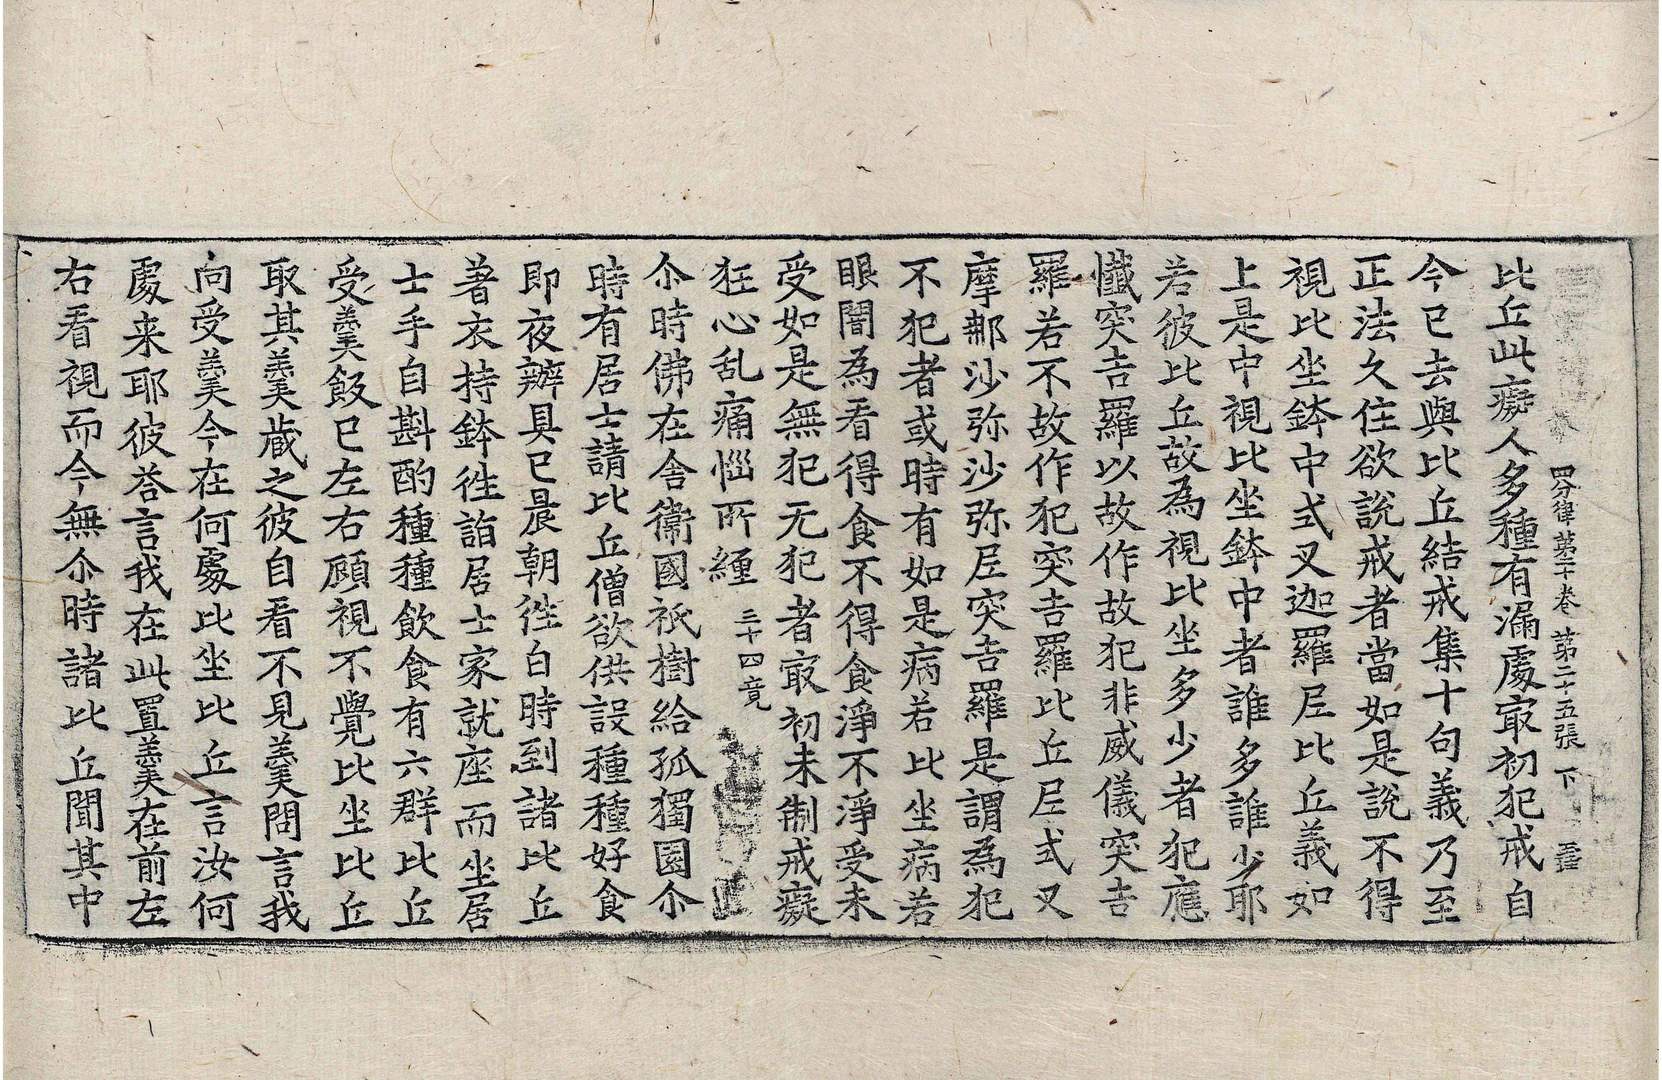 四分律第二十卷 第二十五張 下
比丘此癡人多種有漏處㝡初犯戒自
今已去與比丘結戒集十句義乃至
正法久住欲說戒者當如是說不得
視比坐鉢中式叉迦羅尼比丘義如
上是中視比坐鉢中者誰多誰少耶
若彼比丘故為視比坐多少者犯應
懺突吉羅以故作故犯非威儀突吉
羅若不故作犯突吉羅比丘尼式叉
摩那沙弥沙弥尼突吉羅是謂為犯
不犯者或時有如是病若比坐病若
眼闇為看得食不得食淨不淨受未
受如是無犯无犯者㝡初未制戒癡
狂心乱痛惱所纏 三十四竟
尒時佛在舍衞國祇樹給孤獨園尒
時有居士請比丘僧欲供設種種好食
即夜辦具已晨朝徃白時到諸比丘
著衣持鉢徃詣居士家就座而坐居
士手自斟酌種種飲食有六群比丘
受羹飯已左右顧視不覺比坐比丘
取其羹藏之彼自看不見羹問言我
向受羹今在何處比坐比丘言汝何
處来耶彼荅言我在此置羹在前左
右看視而今無尒時諸比丘聞其中